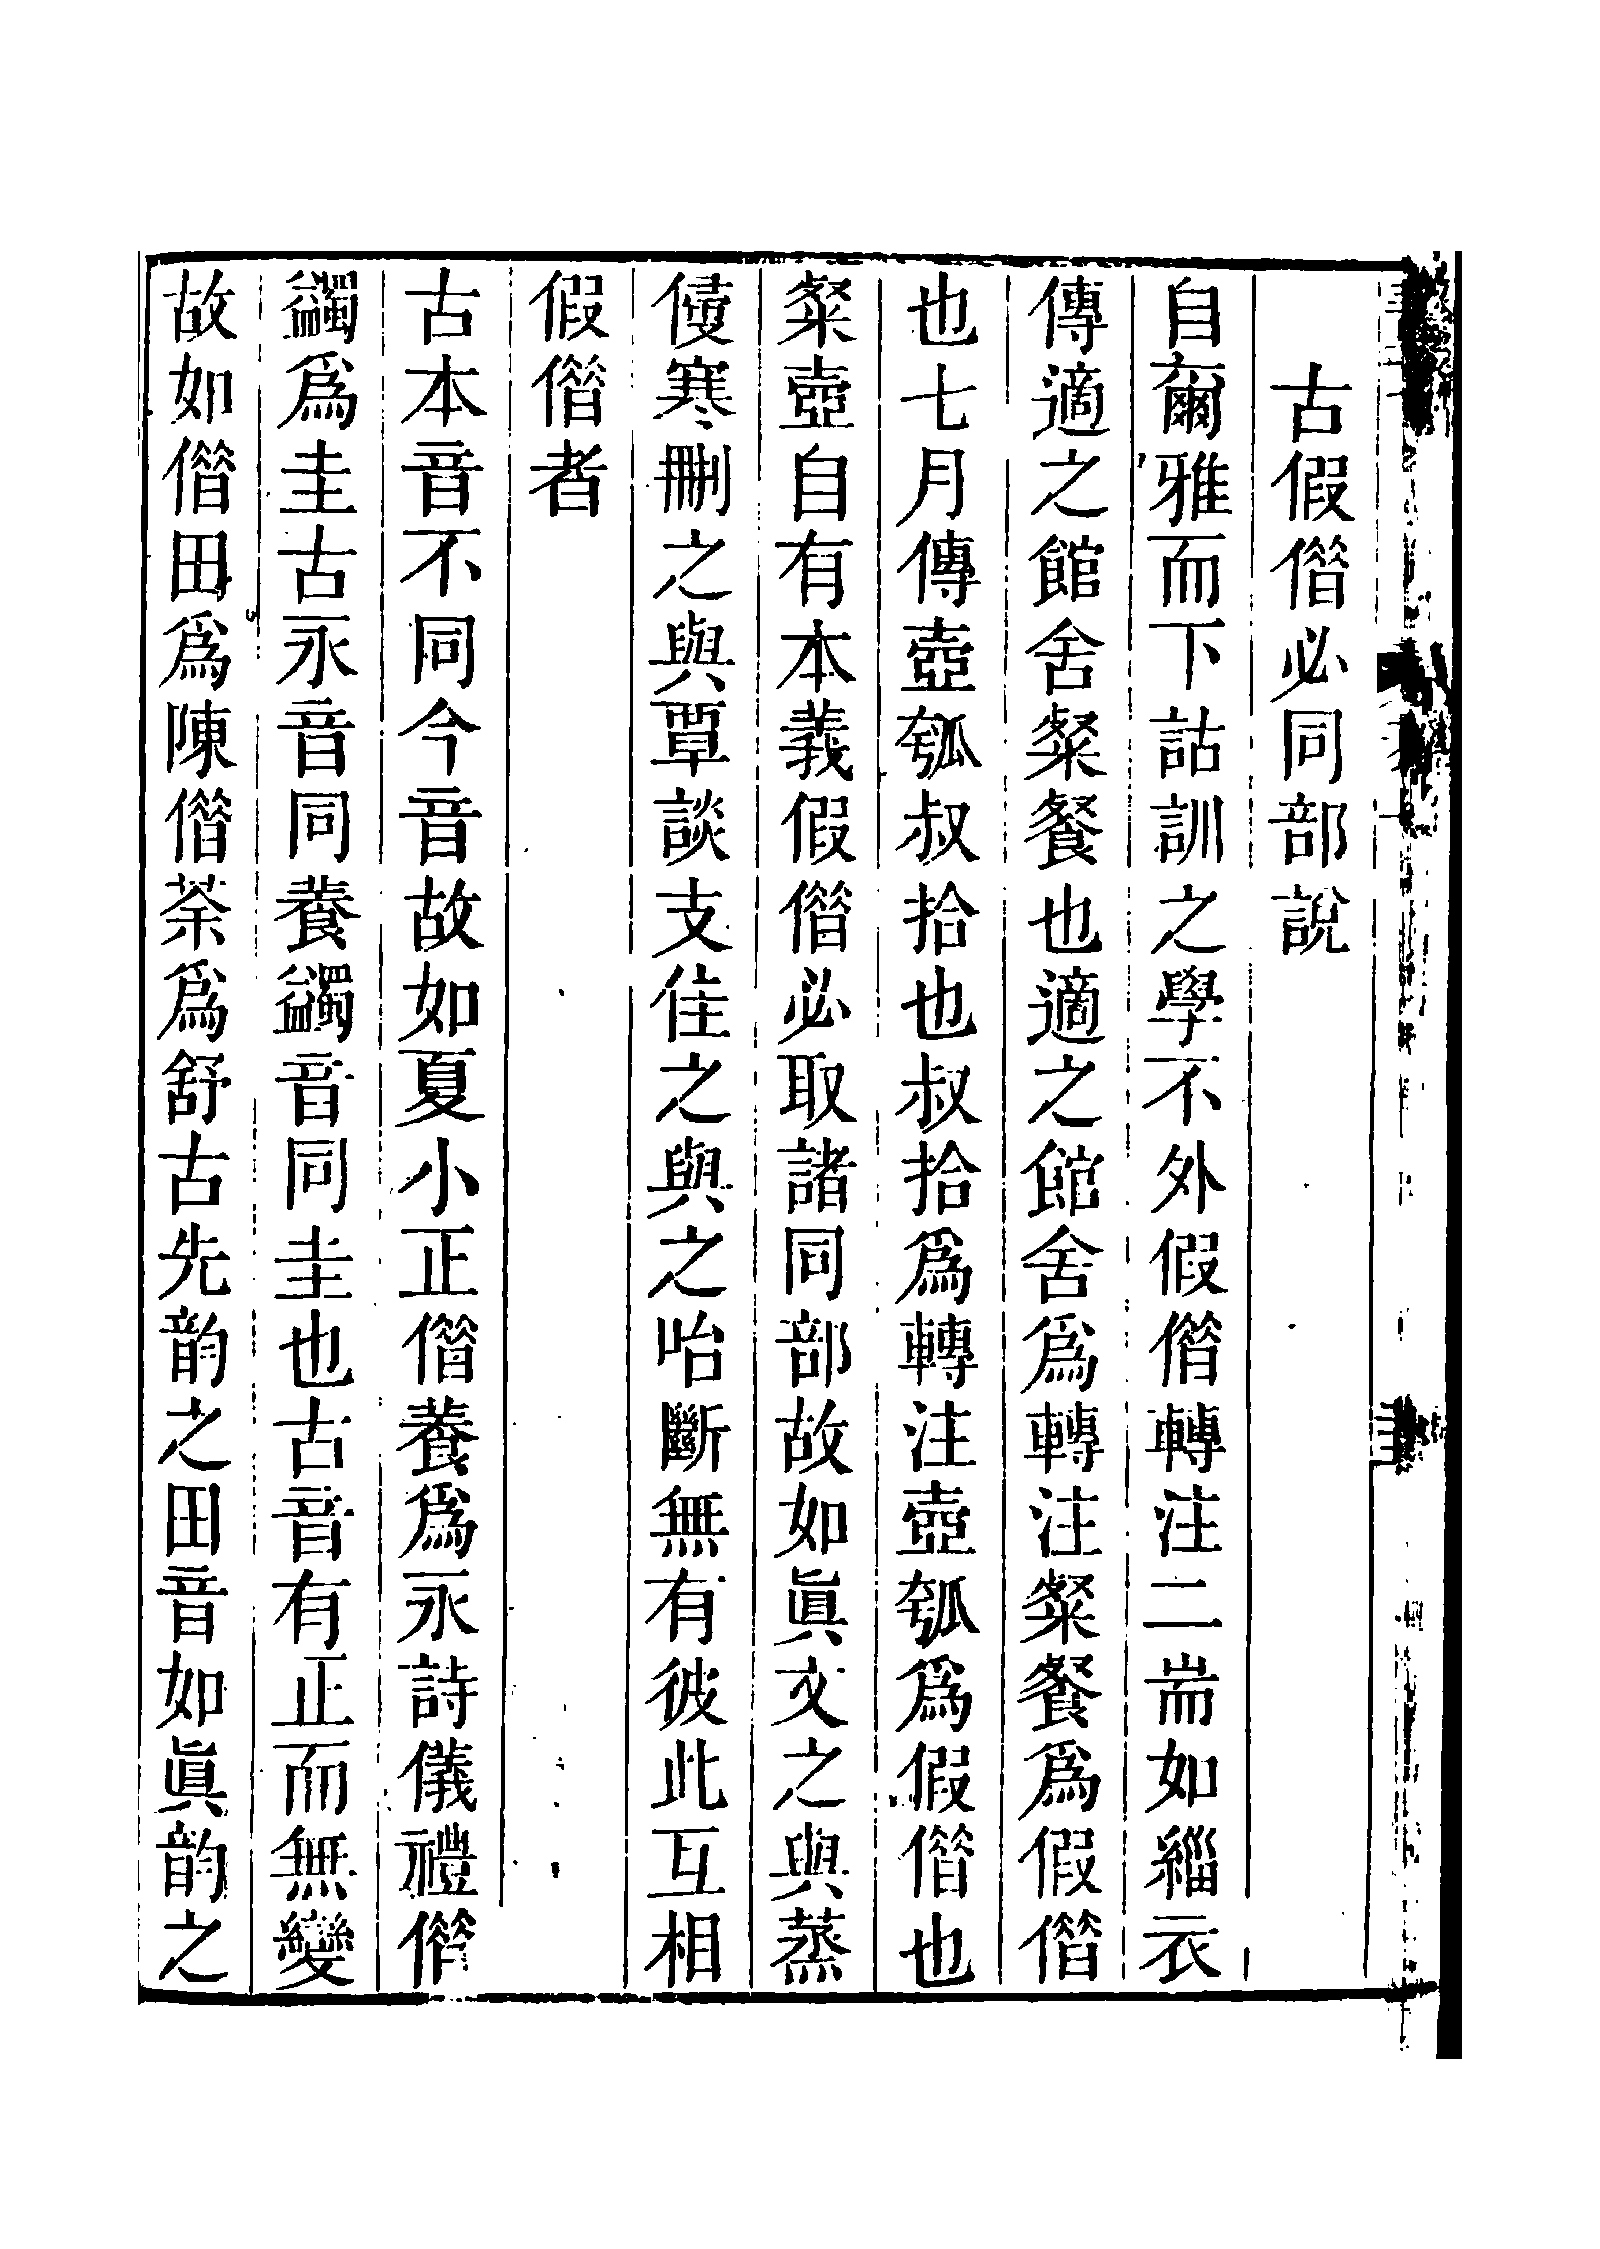 古假偕必同部說
自爾雅而下詁訓之學不外假偕轉注二耑如緇衣
傳適之館舍粲餐也適之館舍爲轉注粲餐爲假偕
也七月傳壺瓠叔拾也叔拾爲轉注壺瓠爲假偕也
粲壺自有本義假偕必取諸同部故如眞文之與蒸
侵寒刪之與覃談支佳之與之咍斷無有彼此互相
假偕者
古本音不同今音故如夏小正偕養爲永詩儀禮偕
蠲爲圭古永音同養蠲音同圭也古音有正而無變
故如偕田爲陳偕荼爲舒古先韵之田音如眞韵之